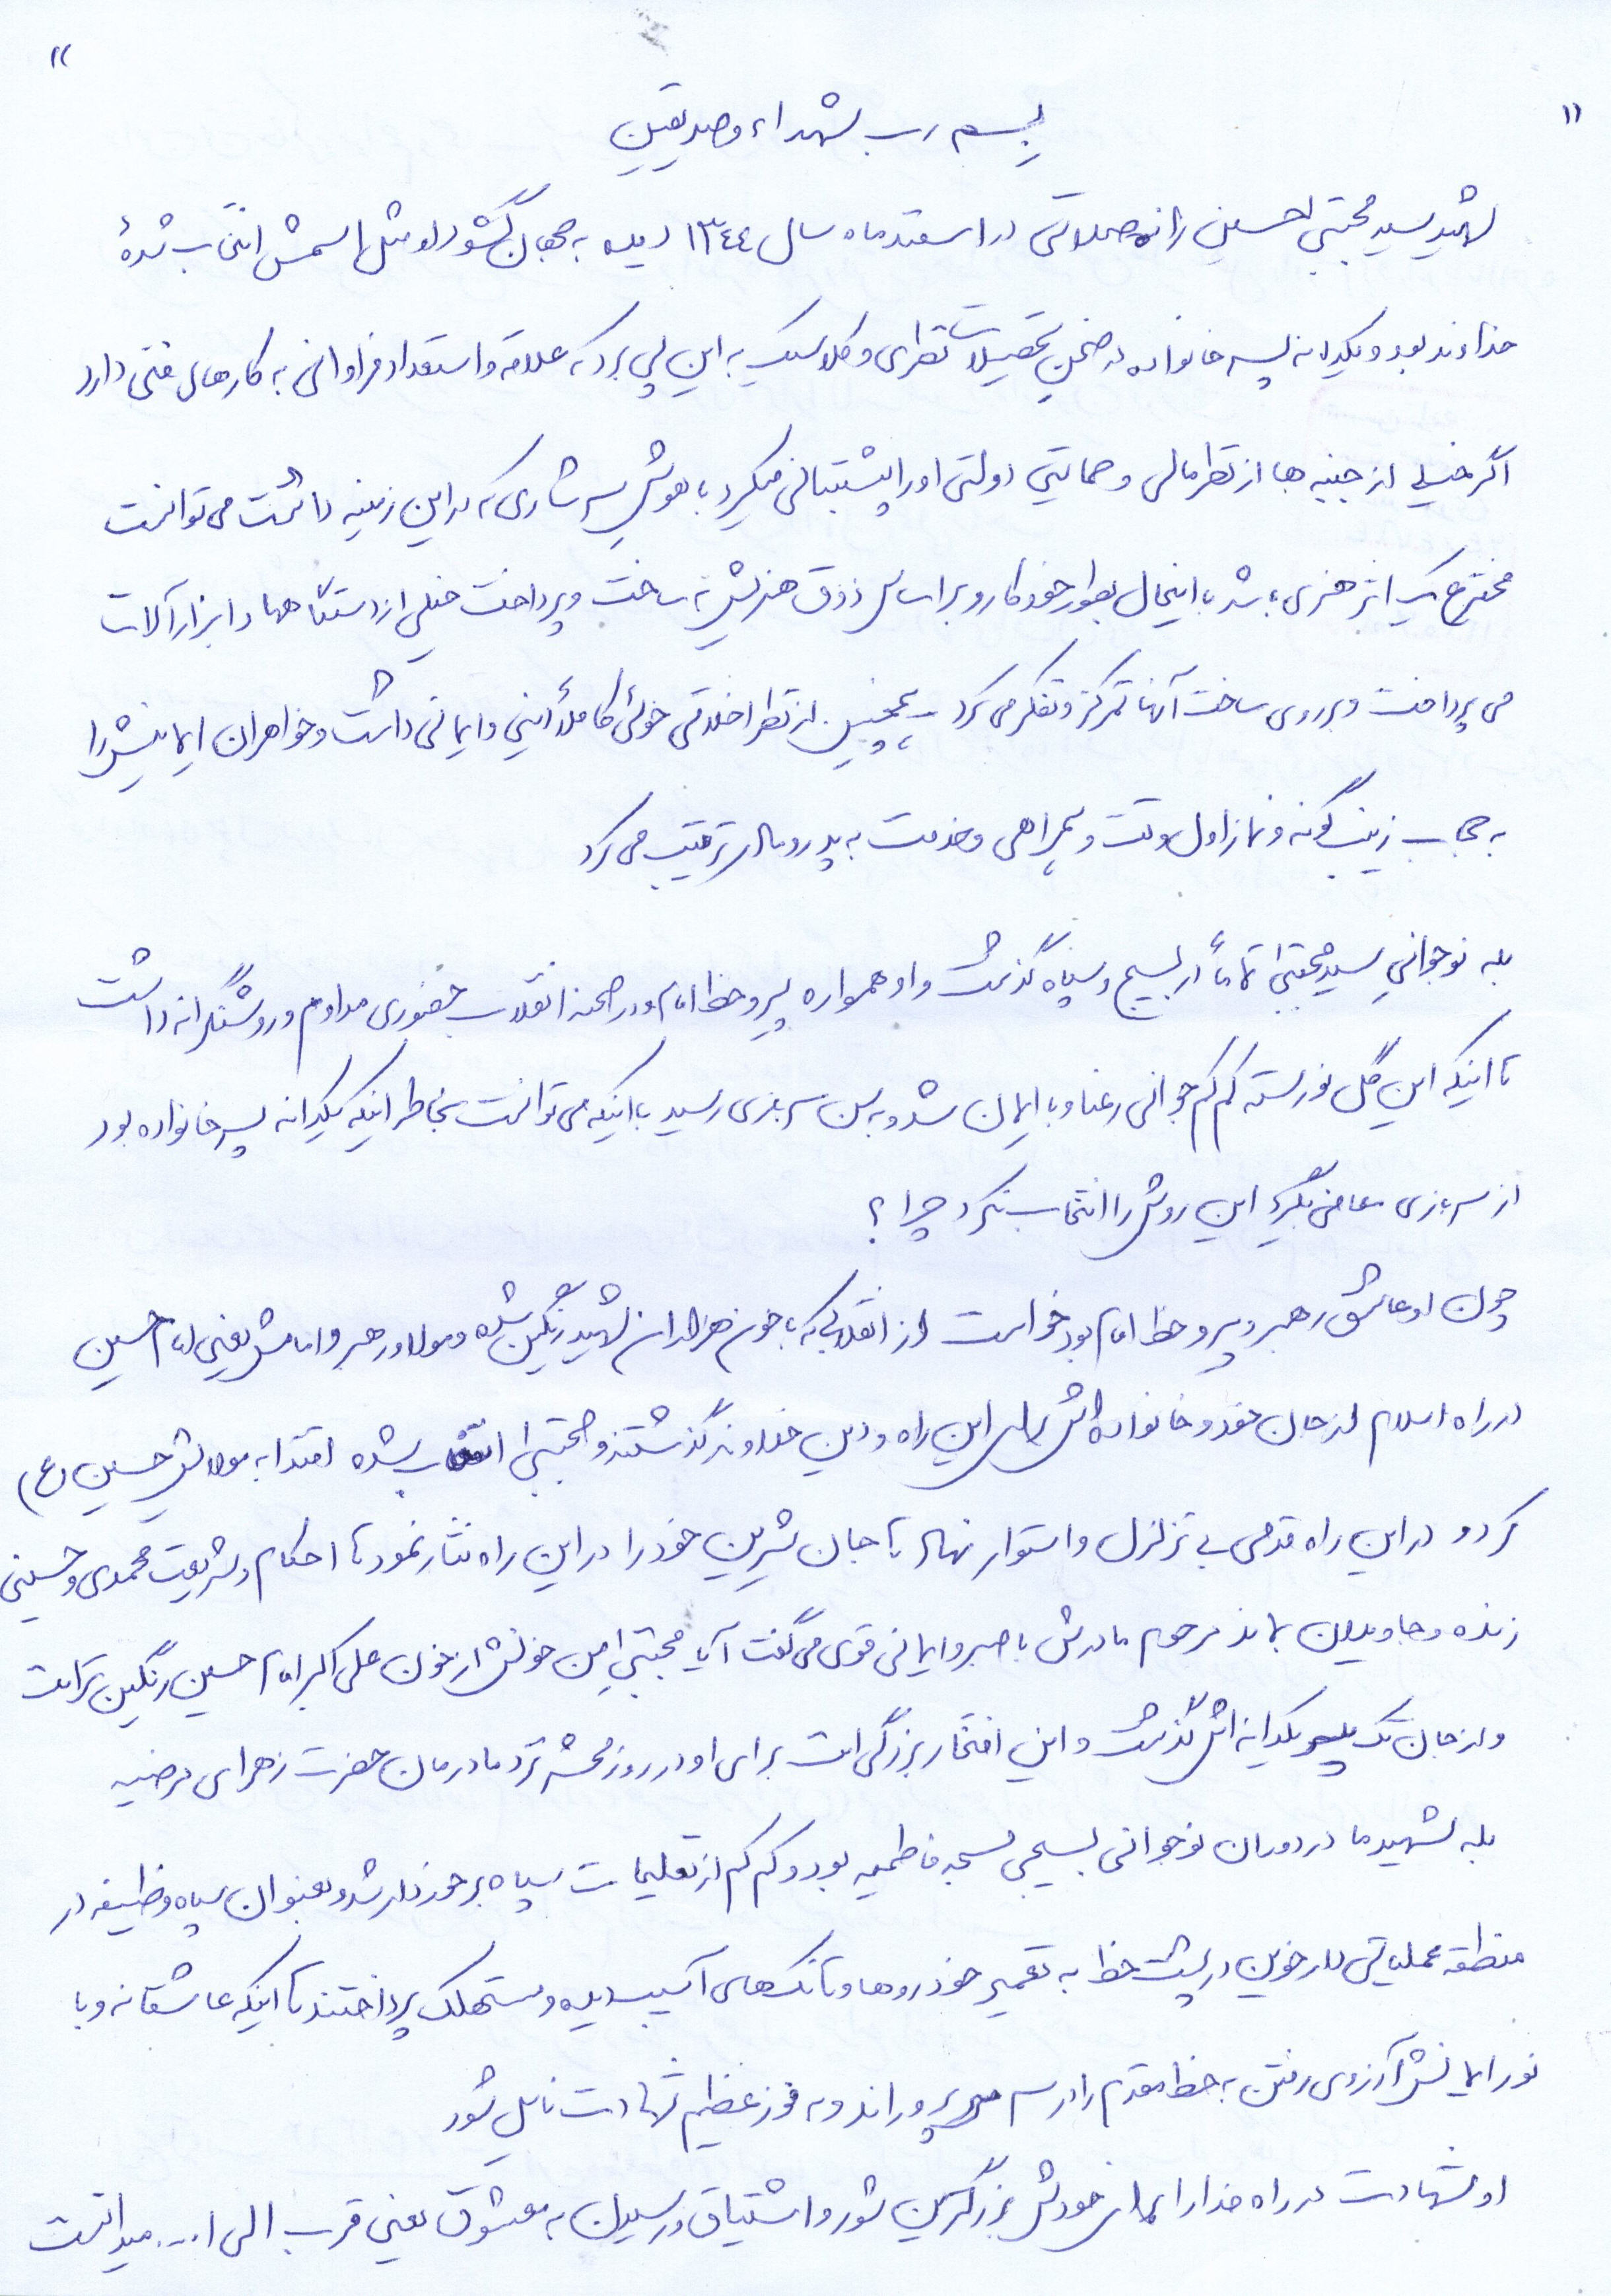 "
"
بسم رب الشهداء و صدیقین
شهید سید مجتبی حسینی در اسفند ماه سال ۱۳۴۴ دیده به جهان گشود او مثل اسمش انتخاب شدهٔ
خداوند بود و یکدانه پسر خانواده در ضمن تحصیلات نظری و کلاسیک به این پی برد که علاقه و استعداد فراوانی به کارهای فنی دارد
اگر خیلی از جنبه ها از نظر مالی و حمایتی دولتی او را پشتیبانی میکرد با هوش سرشاری که در این زمینه داشت می توانست
مخترع یک اثر هنری باشد با اینحال بطور خودکار و بر اساس ذوق هنریش به ساخت و پرداخت خیلی از دستگاهها و ابزار آلات
می پرداخت و بر روی ساخت آنها تمرکز و تفکر می کرد همچنین از نظر اخلاقی خوئی کاملاً دینی و ایمانی داشت و خواهران ایمانیش را
به حجاب زینب گونه و نماز اول وقت و همراهی و خدمت به پدر و مادر ترغیب می کرد
بله نوجوانی سید مجتبی تماماً در بسیج و سپاه گذشت و او همواره پیرو خط امام و در صحنه انقلاب حضوری مداوم و روشنگرانه داشت
تا اینکه این گل نورسته کم کم جوانی رعنا و با ایمان شد و به سن سربازی رسید با اینکه می توانست بخاطر اینکه یکدانه پسر خانواده بود
از سربازی معافی بگیرد این روش را انتخاب نکرد چرا؟
چون او عاشق رهبر و پیرو خط امام بود خواست از انقلابی که با خون هزاران شهید رنگین شده و مولا و رهبر و امامش یعنی امام حسین
در راه اسلام از جان خود و خانواده اش برای این راه و دین خداوند گذشتند و مجتبی انتخاب شده اقتدا به مولایش حسین (ع)
کرد و در این راه قدمی بی تزلزل و استوار نهاد تا جان شیرین خود را در این راه نثار نمود تا احکام و شریعت محمدی و حسینی
زنده و جاویدان بماند مرحوم مادرش با صبر و ایمانی قوی می گفت آیا مجتبی من خونش از خون علی اکبر امام حسین رنگین تر است
و از جان تک پسر یکدانه اش گذشت و این افتخار بزرگی است برای او در روز محشر نزد مادرمان حضرت زهرای مرضیه
بله شهید ما در دوران نوجوانی بسیجی مسجد فاطمیه بود و کم کم از تعلیمات سپاه برخوردار شد و بعنوان سپاه وظیفه در
منطقه عملیاتی دارخوین در پشت خط به تعمیر خودروها و تانک های آسیب دیده و مستهلک پرداختند تا اینکه عاشقانه و با
نور ایمانش آرزوی رفتن به خط مقدم را در سر می پروراند و به فوز عظیم شهادت نایل شود
او شهادت در راه خدا را برای خودش بزرگترین شور و اشتیاق و رسیدن به معشوق یعنی قرب الی ا... میدانست